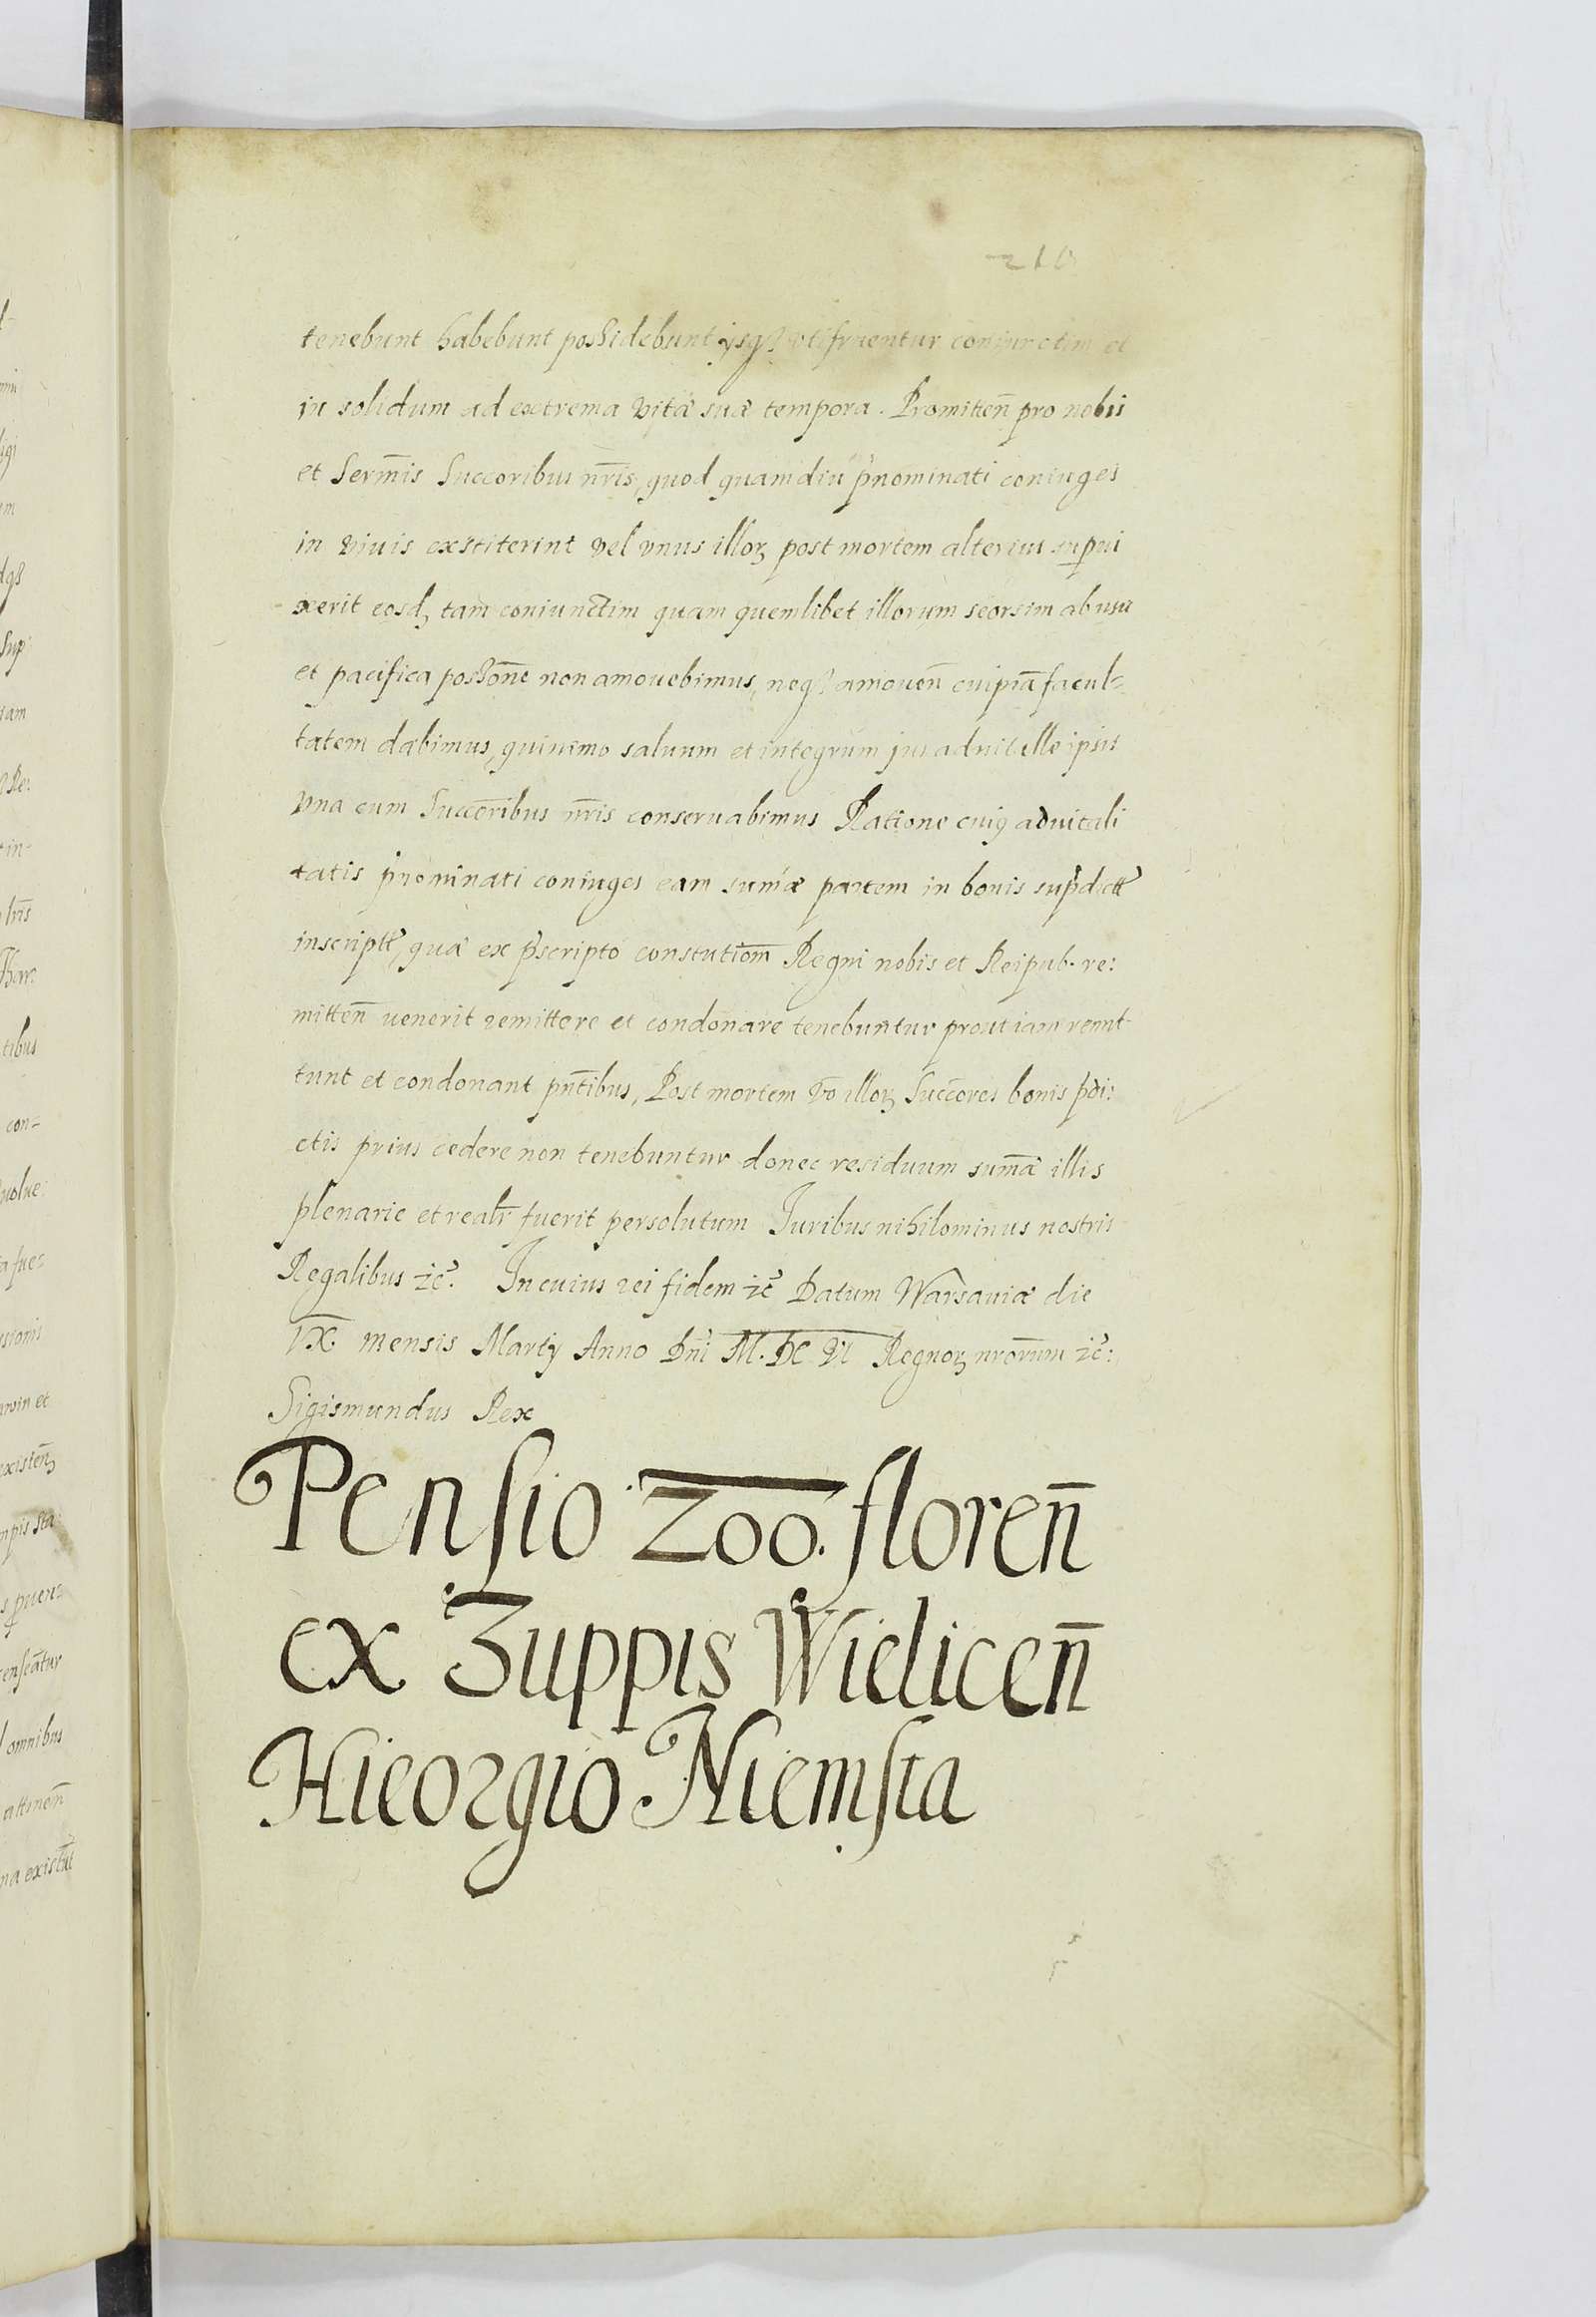 210
tenebunt habebunt possidebunt ijsq₃ utifruentur coniunctim et
in solidum ad extrema vitæ suæ tempora. Promitteñ pro nobis
et Serm̄is Succoribus nr̄is, quod quamdiu p̄nominati coniuges
in viuis exstiterint vel vnus illoꝝ post mortem alterius supui
xerit eosd₃ tam coniunctim quam quemlibet illorum seorsim ab usu
et pacifica possōne non amouebimus, neq₃ amoueñ cuipiā facul-
tatem dabimus, quinimo saluum et integrum jus aduitæ ipsis
vna cum Succoribus nr̄is conseruabimus Ratione cuiꝯ aduitali
tatis p̄nominati coniuges eam sum̄æ partem in bonis sup̄dictt
inscriptt, quæ ex p̄scripto constutiom̄ Regni nobis et Reipub. re:
mitteñ uenerit remittere et condonare tenebuntur prout iam remit
tunt et condonant pn̄tibus, Post mortem v̄o illoꝝ Succores bonis p̄di:
ctis prius cedere non tenebuntur donec residuum sum̄æ illis
plenarie et realr̄ fuerit persolutum Juribus nihilominus nostris
Regalibus ꝛc̄. In cuius rei fidem ꝛc̄ Datum Warsauiæ die
IX. mensis Martij Anno Dn̄i M.DC.VI Regnoꝝ nrōrum ꝛc̄:
Sigismundus Rex
Pensio 200. floreñ
ex Zuppis Wieliceñ
Hieorgio Niemsta